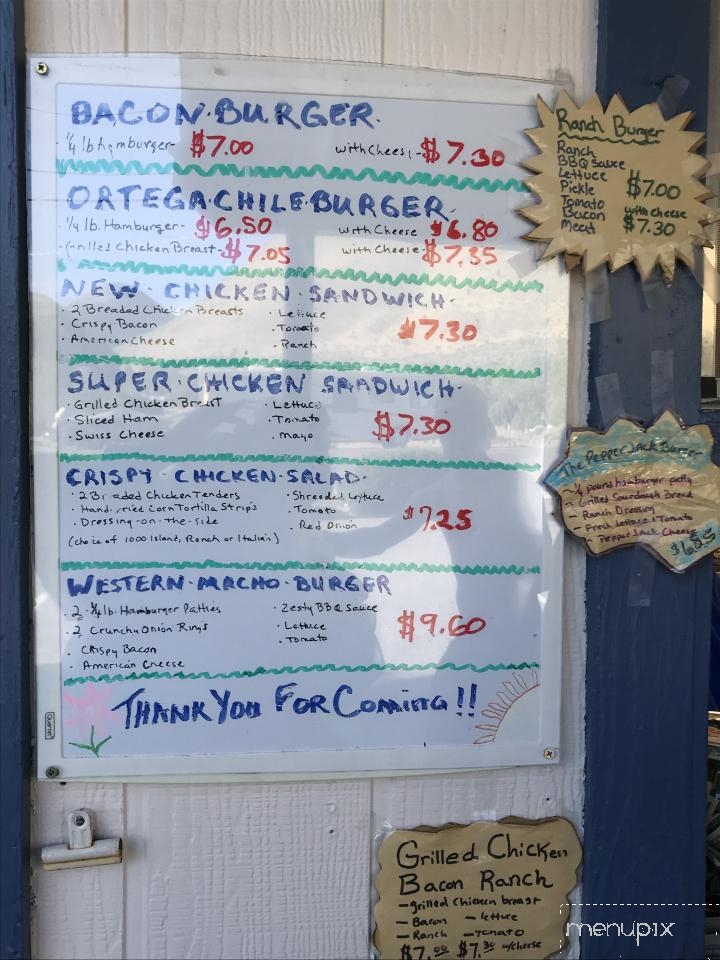 BACON·BURGER·
·1/4 lb. hamburger- $7.00 with Cheese- $7.30
ORTEGA·CHILE·BURGER·
·1/4 lb. Hamburger- $6.50 with Cheese $6.80
·Grilled Chicken Breast- $7.05 with Cheese- $7.35
NEW· CHICKEN· SANDWICH·
· 2 Breaded Chicken Breasts · Lettuce
· Crispy Bacon · Tomato $7.30
· American Cheese · Ranch
SUPER·CHICKEN SAADWICH·
· Grilled Chicken Breast · Lettuce
· Sliced Ham · Tomato $7.30
· Swiss Cheese · Mayo
CRISPY· CHICKEN·SALAD·
· 2 Breaded Chicken Tenders · Shredded Lettuce
· Hand-Fried Corn Tortilla Strips · Tomato $7.25
· Dressing-on-the-side · Red Onion
(choice of 1000 Island, Ranch or Italian)
WESTERN·MACHO·BURGER
· 2-1/4 lb. Hamburger Patties · Zesty BBQ Sauce
· 2 Crunchy Onion Rings · Lettuce $9.60
· Crispy Bacon · Tomato
· American Cheese
THANK YOU FOR Coming!!
Quartet
Ranch Burger
Ranch
BBQ Sauce
Lettuce
Pickle $7.00
Tomato
Bacon with cheese
Meat $7.30
The Pepper Jack Burger
~ 1/4 pound hamburger patty
~ Grilled Sourdough Bread
~ Ranch Dressing
~ Fresh lettuce & Tomato
~ Pepper Jack Cheese
$6.85
Grilled Chicken
Bacon Ranch
- grilled chicken breast
- Bacon - lettuce
- Ranch - Tomato
$7.00 $7.30 w/cheese
menupix